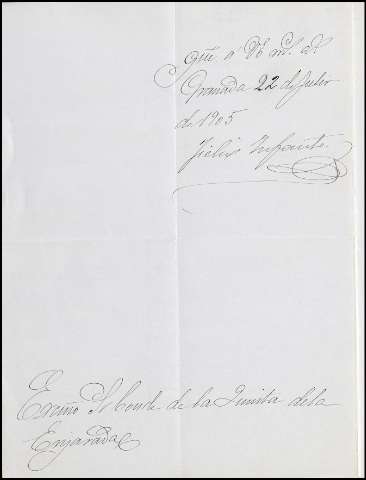 gue. á VE ms. as.
Granada 22 de Julio
de 1905
Infante
Exmo Sr Conde de la Quinta de la
Enjarada